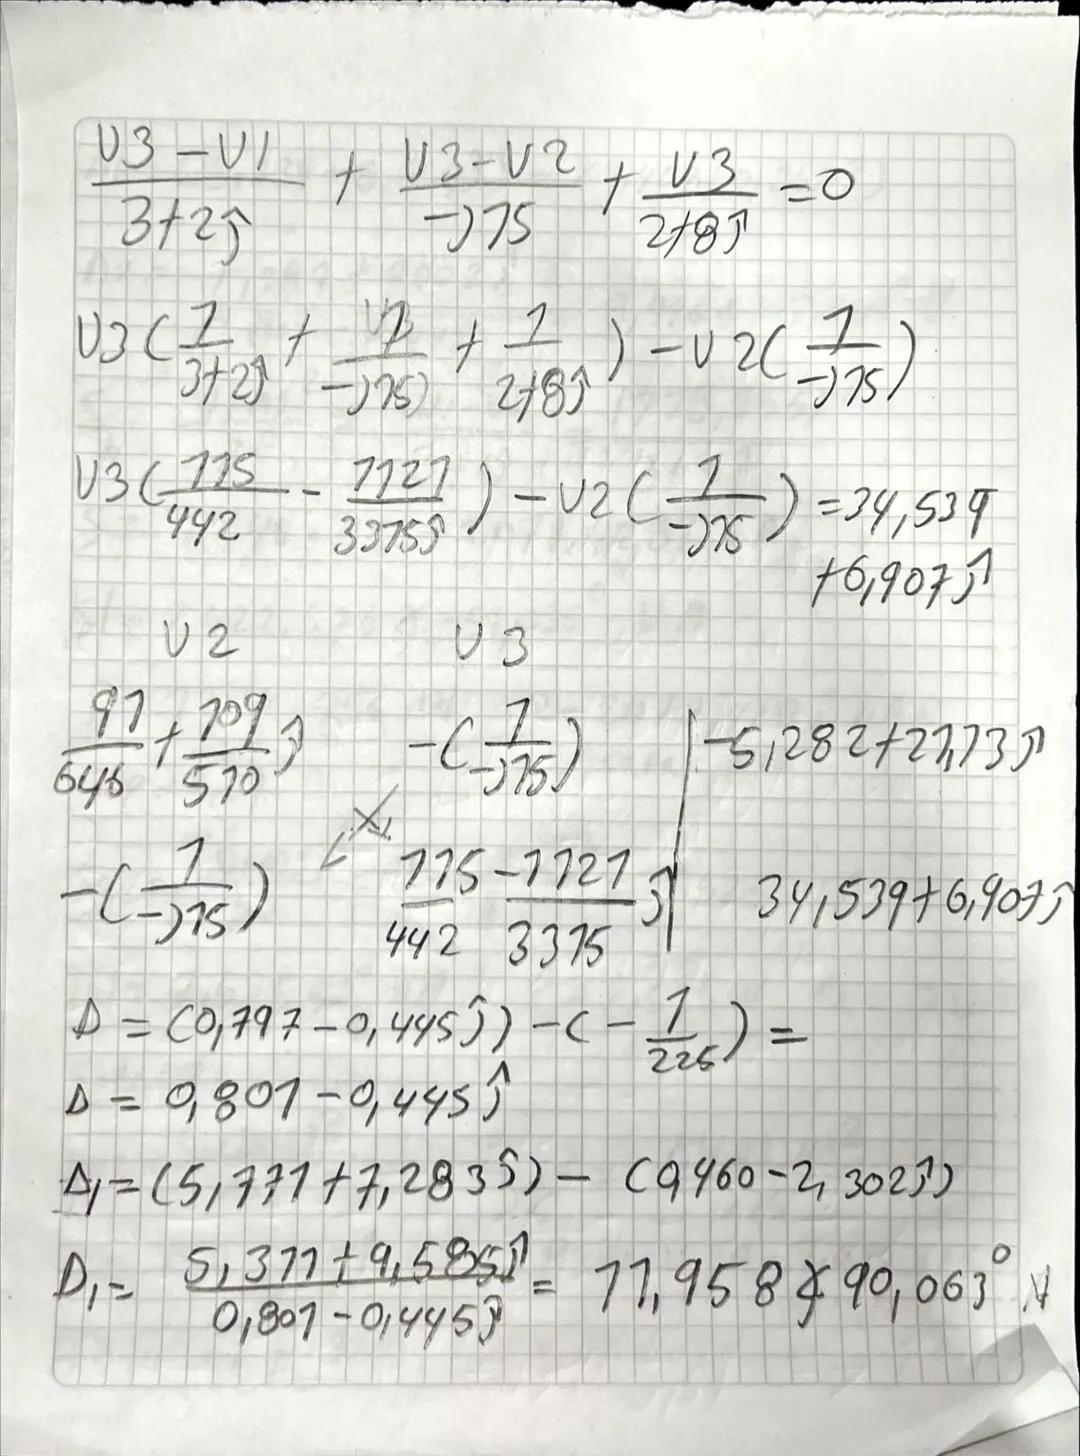 (U3-U1)/(3+2j) + (U3-U2)/(-j15) + U3/(2+8j) = 0
U3(1/(3+2j) + 1/(-j15) + 1/(2+8j)) - U2(1/(-j15))
U3(115/442 - 1121/3315j) - U2(1/(-j15)) = 34,539
+6,907j
U2 U3
91/646 + 109/510 j -(1/(-j15)) | -5,282+21,13j
-(1/(-j15)) 115/442 - 1121/3315 j | 34,539+6,907j
Δ = (0,797-0,445j) - (-1/225) =
Δ = 0,801-0,445j
Δ1 = (5,771+7,283j) - (0,460-2,302j)
D1 = (5,311+9,585j)/(0,801-0,445j) = 11,958∡90,063° V